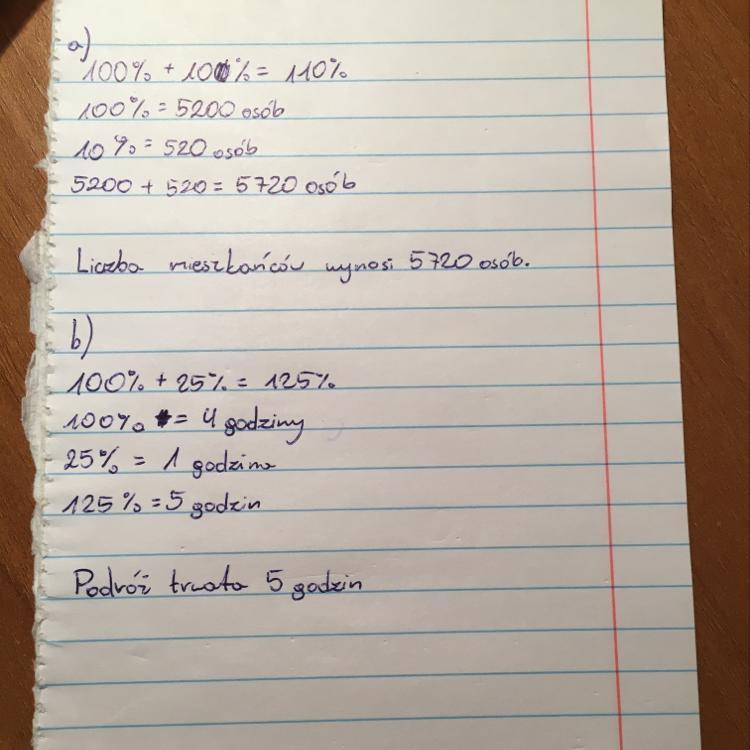 a)
100% + 10% = 110%
100% = 5200 osób
10% = 520 osób
5200 + 520 = 5720 osób
Liczba mieszkańców wynosi 5720 osób.
b)
100% + 25% = 125%
100% = 4 godziny
25% = 1 godzina
125% = 5 godzin
Podróż trwała 5 godzin